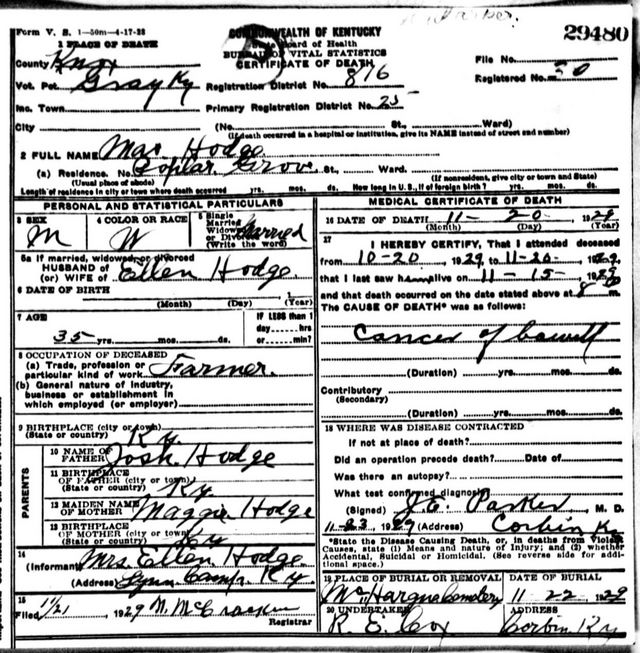 Parker.
Form V. S. 1-50m-4-17-28
COMMONWEALTH OF KENTUCKY
State Board of Health
BUREAU OF VITAL STATISTICS
CERTIFICATE OF DEATH
29480
1 PLACE OF DEATH
County Knox
Vot. Pct. Gray Ky Registration District No. 816
File No.
Registered No. 20
Inc. Town Primary Registration District No. 25
City (No. St., Ward)
(If death occurred in a hospital or institution, give its NAME instead of street and number)
2 FULL NAME Mac Hodge
(a) Residence. No. Poplar Grove St., Ward.
(Usual place of abode) (If nonresident, give city or town and State)
Length of residence in city or town where death occurred yrs. mos. ds. How long in U. S., if of foreign birth? yrs. mos. ds.
PERSONAL AND STATISTICAL PARTICULARS
3 SEX M
4 COLOR OR RACE W
5 Single Married Widowed or Divorced (Write the word) Married
5a If married, widowed or divorced
HUSBAND of
(or) WIFE of Ellen Hodge
6 DATE OF BIRTH
(Month) (Day) (Year)
7 AGE
35 yrs. mos. ds.
If LESS than 1
day hrs
or min?
8 OCCUPATION OF DECEASED
(a) Trade, profession or
particular kind of work Farmer.
(b) General nature of industry,
business or establishment in
which employed (or employer)
9 BIRTHPLACE (city or town)
(State or country) Ky.
PARENTS
10 NAME OF
FATHER Josh Hodge
11 BIRTHPLACE
OF FATHER (city or town)
(State or country) Ky
12 MAIDEN NAME
OF MOTHER Maggie Hodge
13 BIRTHPLACE
OF MOTHER (city or town)
(State or country) Ky
14
(Informant) Mrs. Ellen Hodge
(Address) Lynn Camp Ky.
15
Filed 11/21 1929 M. McCracken
Registrar
MEDICAL CERTIFICATE OF DEATH
16 DATE OF DEATH 11-20- 1929
(Month) (Day) (Year)
17
I HEREBY CERTIFY, That I attended deceased
from 10-20 1929 11-20- 1929,
that I last saw h alive on 11-15- 1929
and that death occurred on the date stated above at 8 m
The CAUSE OF DEATH* was as follows:
Cancer of bowell
(Duration) yrs. mos. ds.
Contributory
(Secondary)
(Duration) yrs. mos. ds.
18 WHERE WAS DISEASE CONTRACTED
If not at place of death?
Did an operation precede death? Date of
Was there an autopsy?
What test confirmed diagnosis?
(Signed) J.E. Parker M. D.
11-23 1929 (Address) Corbin Ky
*State the Disease Causing Death, or, in deaths from Violent
Causes, state (1) Means and nature of Injury; and (2) whether
Accidental, Suicidal or Homicidal. (See reverse side for addi-
tional space.)
19 PLACE OF BURIAL OR REMOVAL
McHargue Cemetery
DATE OF BURIAL
11-22 1929
20 UNDERTAKER
R. E. Cox
ADDRESS
Corbin Ky